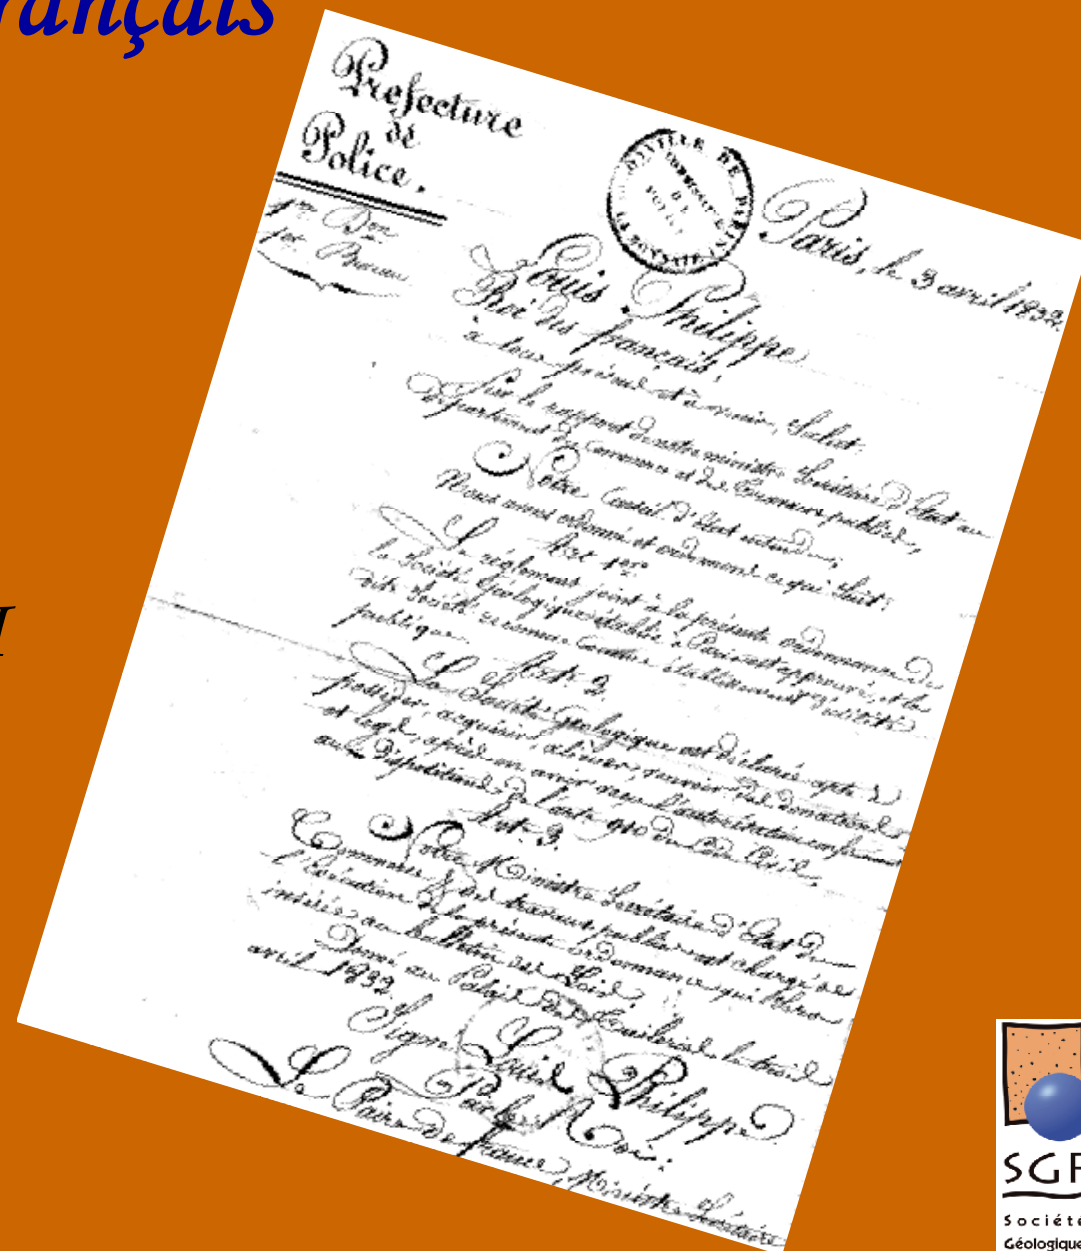 rançais
Prefecture
de
Police.
1re Don
1er Bureau
VILLE DE PARIS
Paris, le 3 avril 1832.
Louis Philippe
Roi des français,
à tous présens et à venir, Salut.
Sur le rapport de notre ministre Secrétaire d'Etat au
département du Commerce et des Travaux publics,
Notre Conseil d'Etat entendu,
Nous avons ordonné et ordonnons ce qui suit:
Art. 1er
Le réglement joint à la présente ordonnance de
la Société Géologique établie à Paris est approuvé, et la
dite Société reconnue comme établissement d'utilité
publique.
Art. 2.
La Société géologique est déclarée apte à
posséder, acquérir, aliéner, recevoir des donations
et legs, après en avoir reçu l'autorisation conformément
aux dispositions de l'art. 910 du Code Civil.
Art. 3.
Notre Ministre Secrétaire d'Etat du
Commerce & des travaux publics est chargé de
l'exécution de la présente ordonnance qui sera
insérée au bulletin des Lois.
Donné au Palais des Tuileries le trois
avril 1832.
Signé Louis Philippe
Par le Roi:
Le Pair de france, Ministre Secrétaire
I
SGF
Société
Géologique